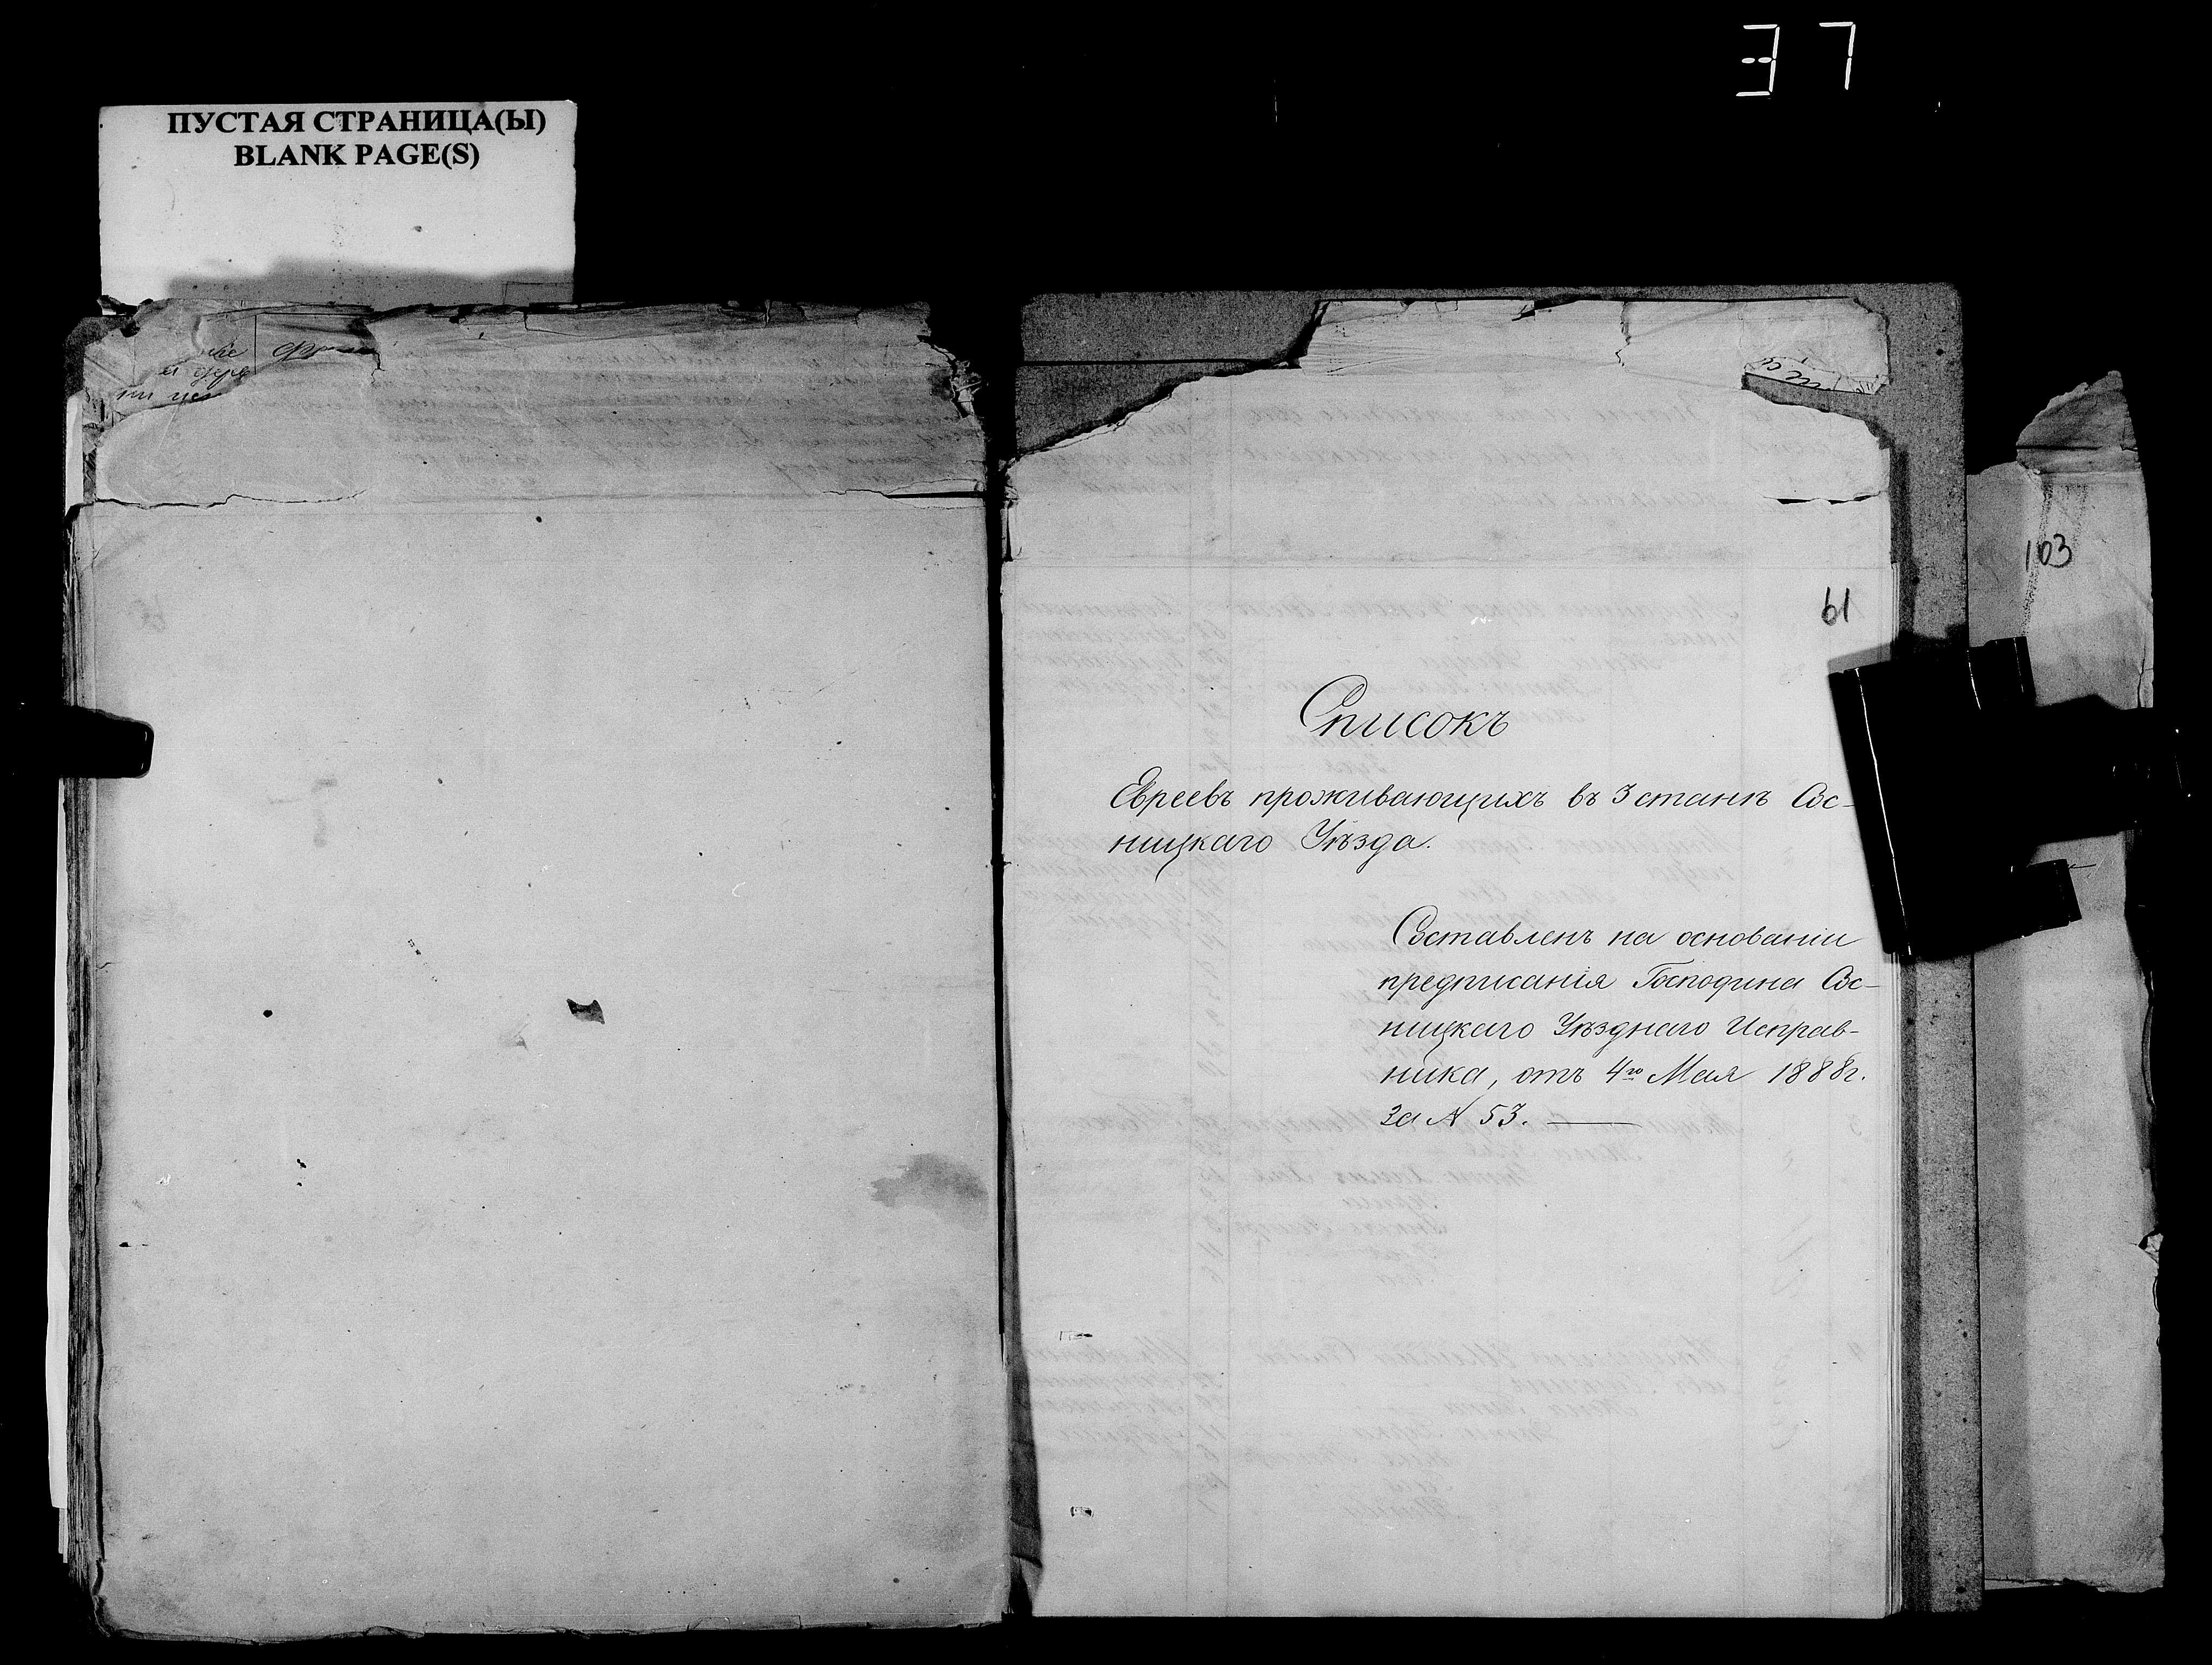 37
ПУСТАЯ СТРАНИЦА(Ы)
BLANK PAGE(S)
103
61
Списокъ
Евреевъ проживающихъ въ 3 станѣ Сос-
ницкаго Уѣзда.
Составленъ на основаніи
предписанія Господина Сос-
ницкаго Уѣзднаго Исправ-
ника, отъ 4го Мая 1888г.
за № 53.